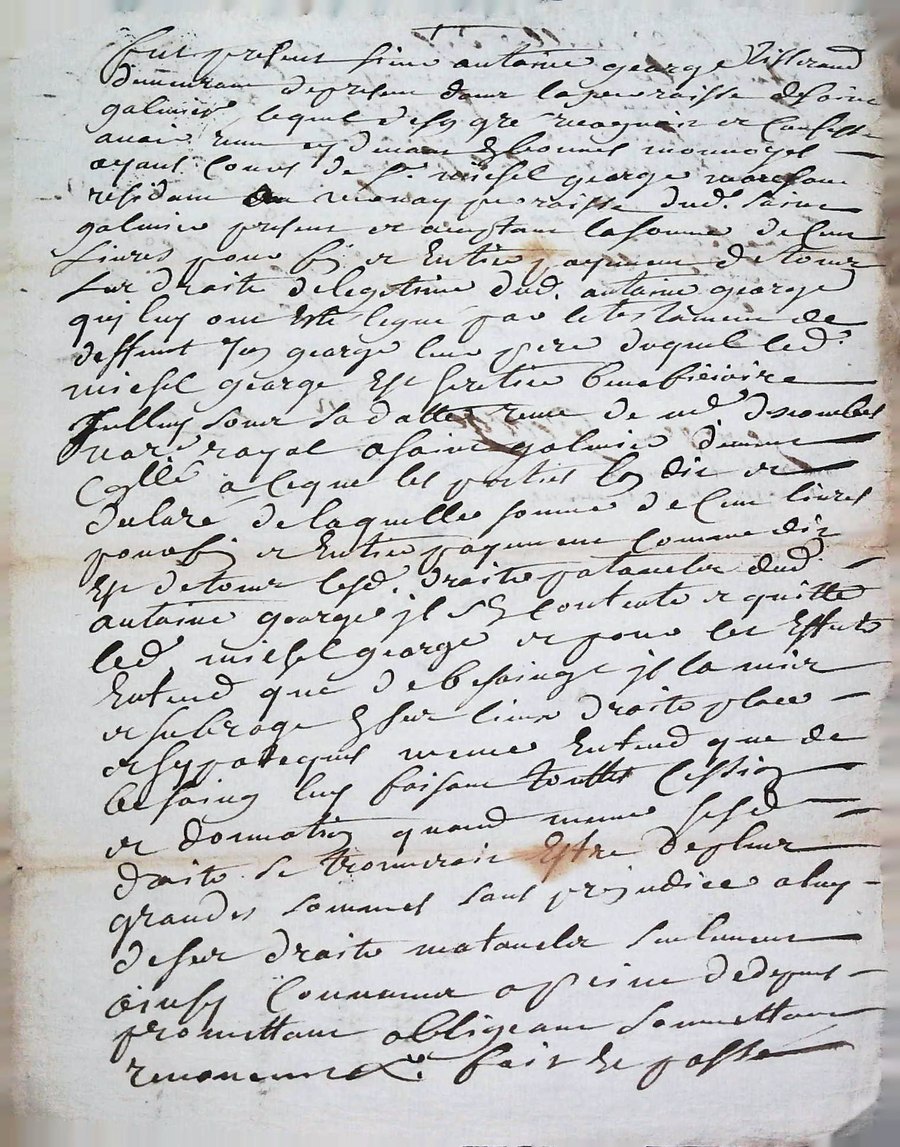 fut present sieur antoine george tisserand
demeurant de present dans la parroisse de saint
galmier lequel de son gré recognoit et confesse
avoir receu cy devant en bonnes monnoyes
ayant cours de sr michel george marchant
residant au parroisse dud. saint
galmier present et acceptant la somme de cent
livres pour fin et entier payement de tous
sur droits de legitime dud. antoine george
quy luy ont esté legué par le testament de
deffunt Jean george leur pere duquel led.
michel george est heritier beneficiaire
sous sa datte receu de me
royal a saint galmier
a ce que les parties ont dit et
declaré de laquelle somme de cent livres
pour fin et entier payement comme dit
est de tous lesd. droits paternels dud.
antoine george il s'en contente et quitte
led. michel george et pour les effects
entend que de besaing il la mis
et subrogé en ses lieux droits place
et hypoteques mesme entend que de
besaing luy faisant touttes cession
et donnation quand mesme sesd
droits se trouveroit estre de plus
grandes sommes sans prejudice a luy
de ses droits maternels seulement
ainsy convenu a peine de depens
promettant obligeant soumettant
renonceant &a. fait et passé